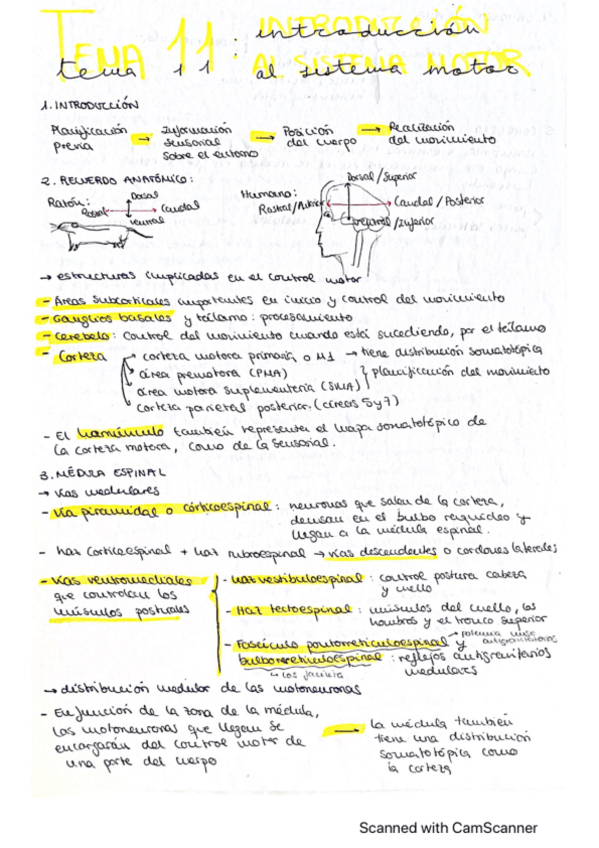 TEMA 11: INTRODUCCIÓN
AL SISTEMA MOTOR
tema 11: introducción
al sistema motor
1. INTRODUCCIÓN
Planificación previa → Información sensorial sobre el entorno → Posición del cuerpo → Realización del movimiento
2. RECUERDO ANATÓMICO:
Ratón:
Dorsal
Rostral
Caudal
Ventral
Humano:
Dorsal / Superior
Rostral / Anterior
Caudal / Posterior
Ventral / Inferior
→ estructuras implicadas en el control motor
- Áreas subcorticales importantes en inicio y control del movimiento
- Ganglios basales y tálamo: procesamiento
- Cerebelo: control del movimiento cuando está sucediendo, por el tálamo
- Corteza
corteza motora primaria o M1 → tiene distribución somatotópica
área premotora (PMA)
área motora suplementeria (SMA)
planificación del movimiento
corteza parietal posterior (áreas 5 y 7)
- El homúnculo también representa el mapa somatotópico de
la corteza motora, como de la sensorial.
3. MÉDULA ESPINAL
→ Vías medulares
- Vía piramidal o córticoespinal: neuronas que salen de la corteza,
decusan en el bulbo raquídeo y
llegan a la médula espinal.
- haz corticoespinal + haz rubroespinal → vías descendentes o cordones laterales
- Vías ventromediales
que controlan los
músculos posturales
- Haz vestibuloespinal: control postura cabeza
y cuello
- Haz tectoespinal: músculos del cuello, los
hombros y el tronco superior
- Fascículo pontorreticuloespinal y
bulborreticuloespinal: reflejos antigravitarios
medulares
→ potencia
antigravitatorios
↳ los
→ distribución medular de las motoneuronas
- En función de la zona de la médula,
las motoneuronas que llegan se
encargarán del control motor de
una parte del cuerpo
→ la médula también
tiene una distribución
somatotópica como
la corteza
Scanned with CamScanner